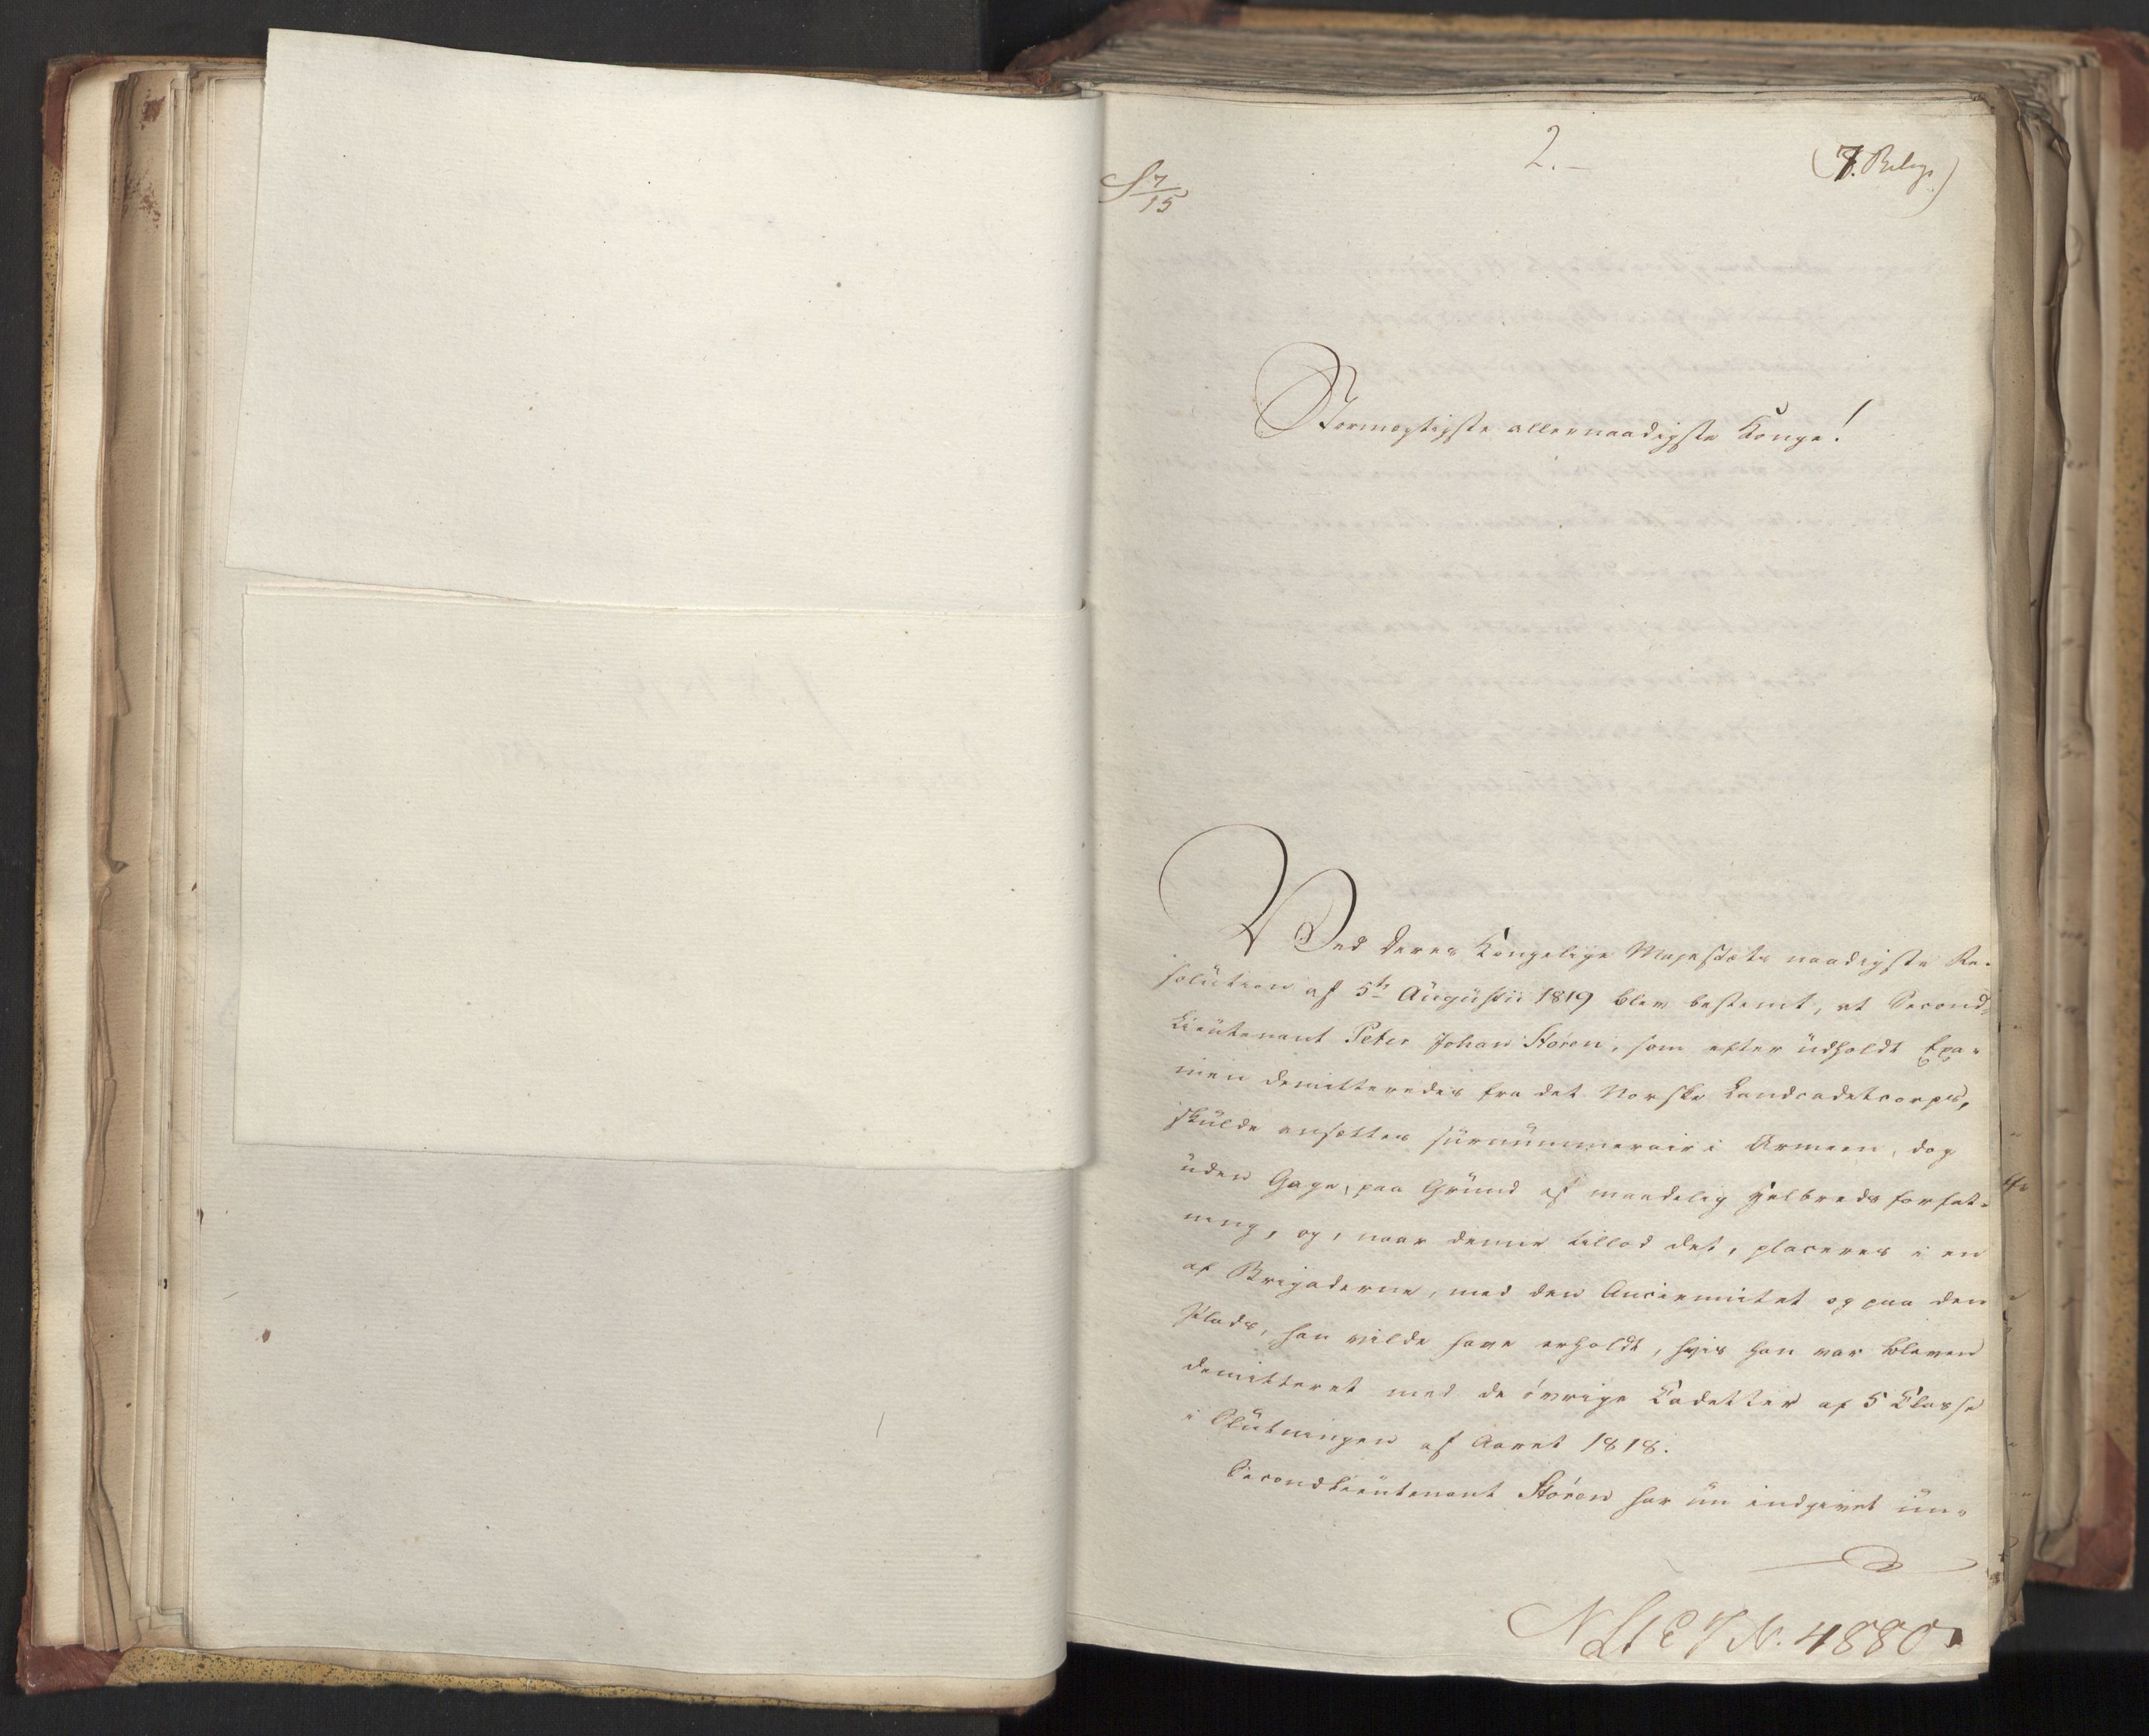 2.-
(7. Bilage)
S 7/15
Stormægtigste allernaadigste Konge!
Ved Deres Kongelige Majestæts naadigste Re-
solution af 5te Augustii 1819 blev bestemt, at Second-
Lieutenant Peter Johan Stören, som efter udholdt Exa-
men demitteredes fra det Norske Landcadetcorps,
skulde ansættes surnummerair i Armeen, dog
uden Gage, paa Grund af maadelig Helbredsforfat-
ning, og, naar denne tillod det, placeres i en
af Brigaderne, med den Anciennitet og paa den
Plads, han vilde have erholdt, hvis han var bleven
demitteret med de övrige Cadetter af 5 Classe
i Slutningen af Aaret 1818.
Secondlieutenant Stören har nu indgivet un-
N. 4880